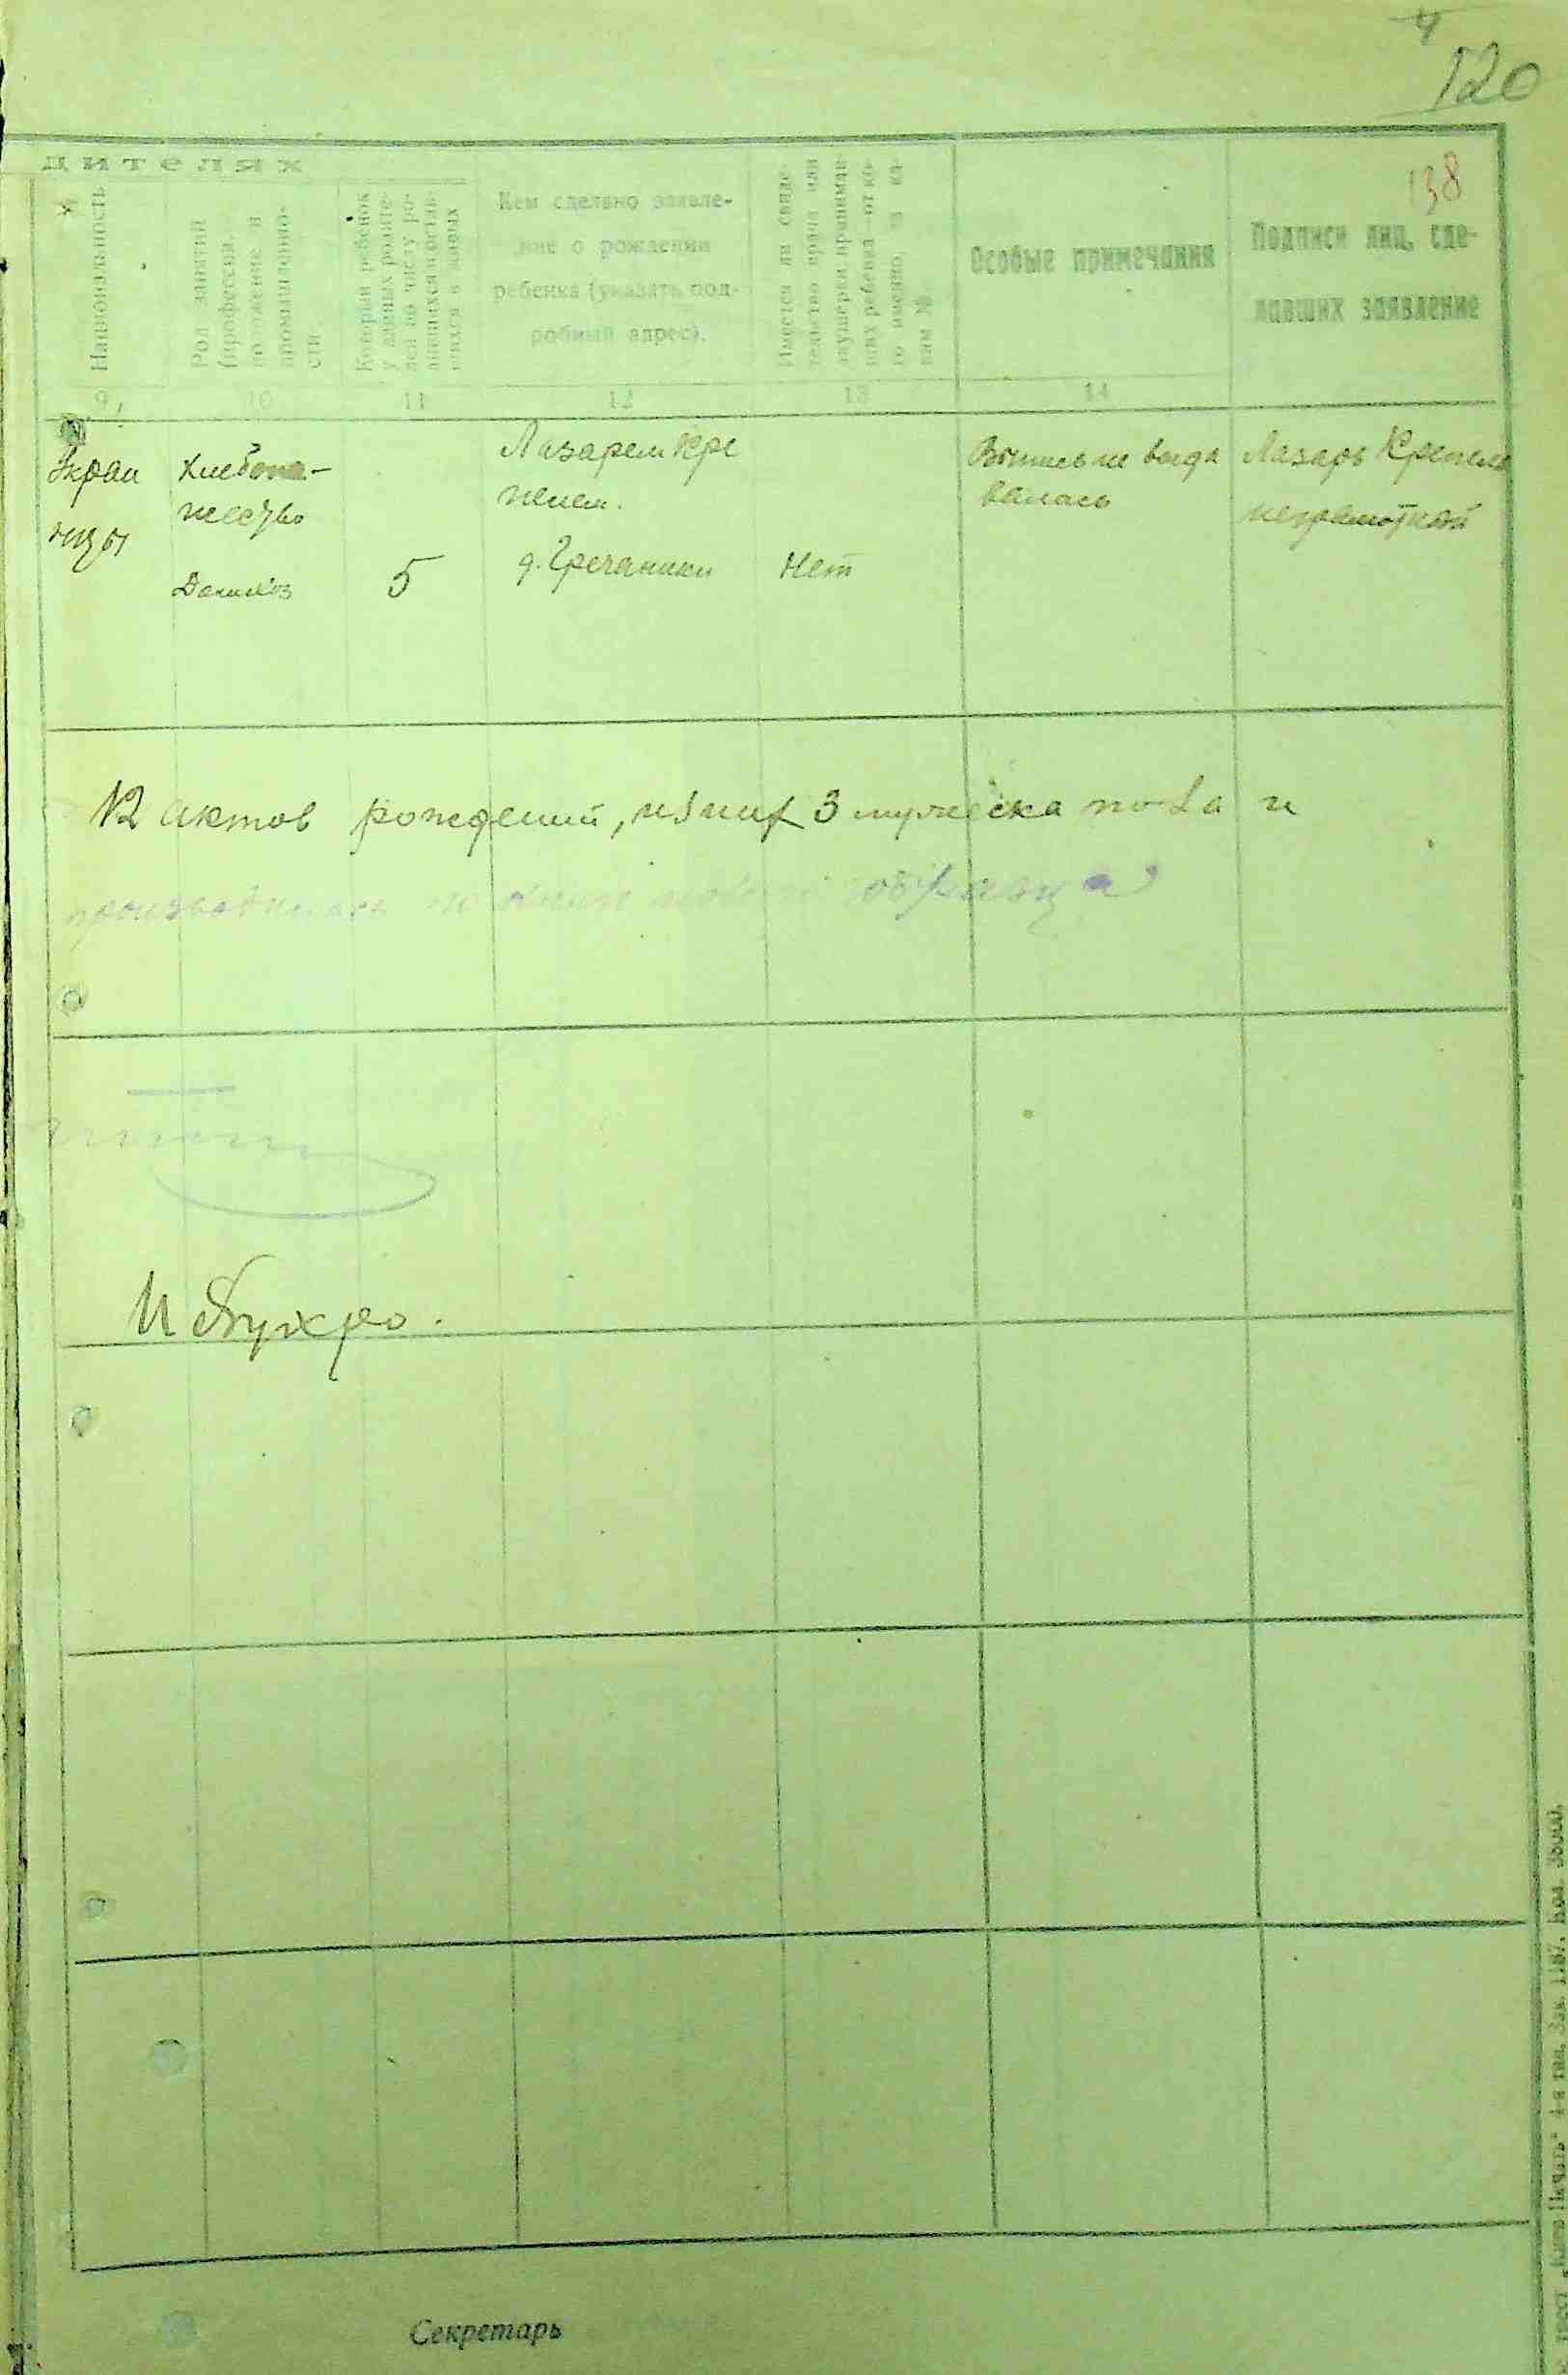 4
120
138
дителях
Национальность
Род занятий
(профессия,
положение в
промышленно-
сти
Который ребенок
у данных родите-
лей по числу ро-
Кем сделано заявле-
ние о рождении
ребенка (указать под-
робный адрес).
Имеется ли свиде-
тельство врача или
акушерки, принимав-
ших ребенка — от ко-
го именно, и ка-
ким №
Особые примечания
Подписи лиц, сде-
лавших заявление
9
10
11
12
13
14
Украи
нцы
Хлебопа-
шество
5
Лазарем Кре
пенем.
д. Гречаники
Нет
Выпись не выда
валась
Лазарь Крепень
неграмотный
12 актов рождений, из них 3 мужеска пола и
образца
Секретарь